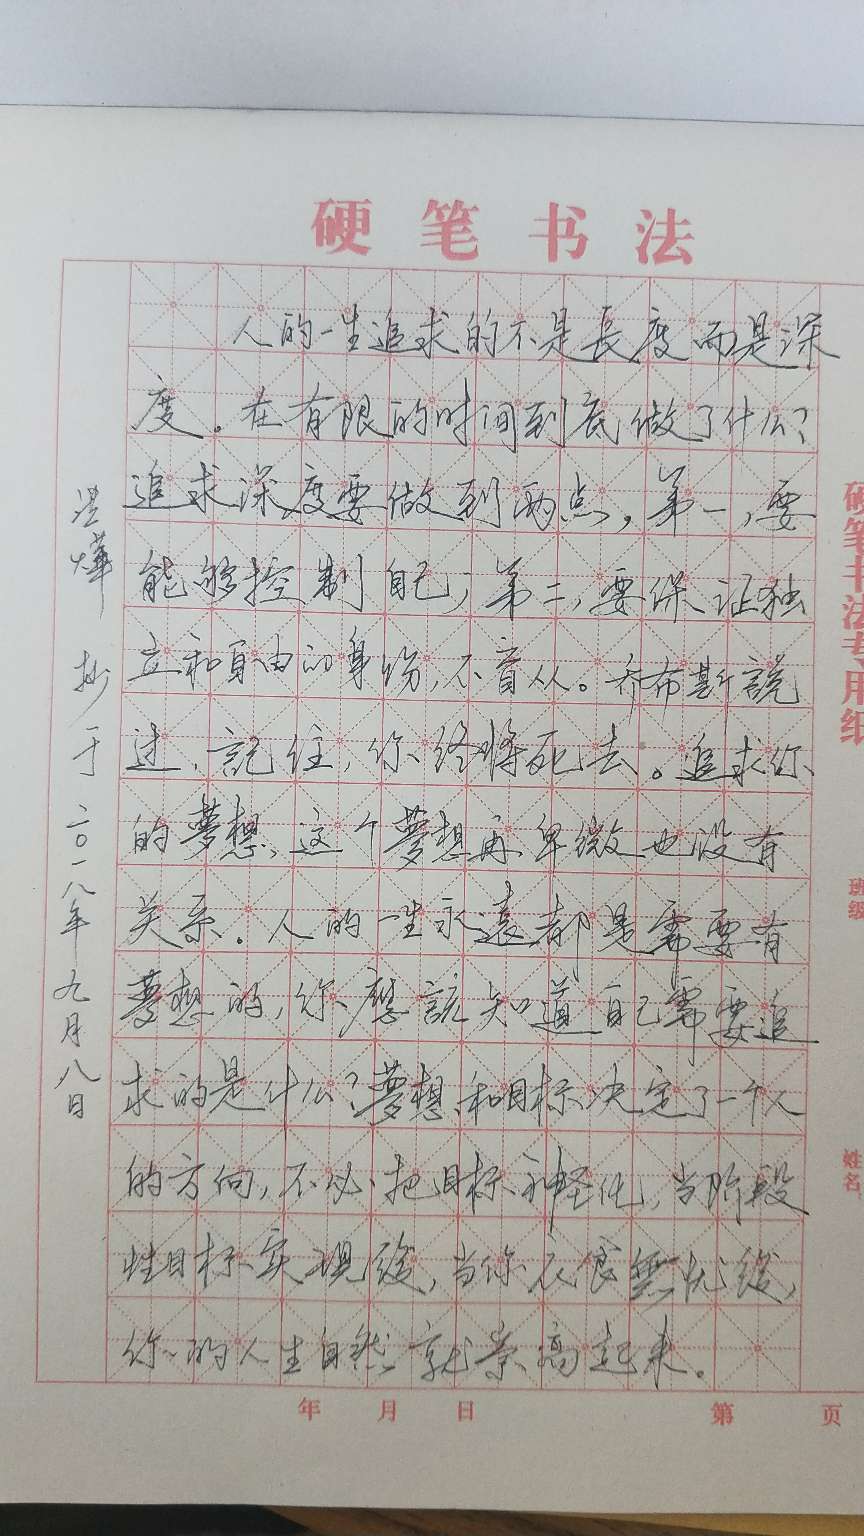 硬笔书法
人的一生追求的不是長度而是深
度。在有限的时间到底做了什么？
追求深度要做到两点，第一，要
能够控制自己；第二，要保证独
立和自由的身份，不盲从。乔布斯説
过，記住，你终将死去。追求你
的夢想，这个夢想再卑微也没有
关系。人的一生永遠都是需要有
夢想的，你應該知道自己需要追
求的是什么？夢想和目标决定了一个人
的方向，不必把目标神圣化，当阶段
性目标实现後，当你衣食無忧後，
你的人生自然就崇高起来。
抄于二〇一八年九月八日
硬笔书法专用纸
班级
姓名
年 月 日
第 页